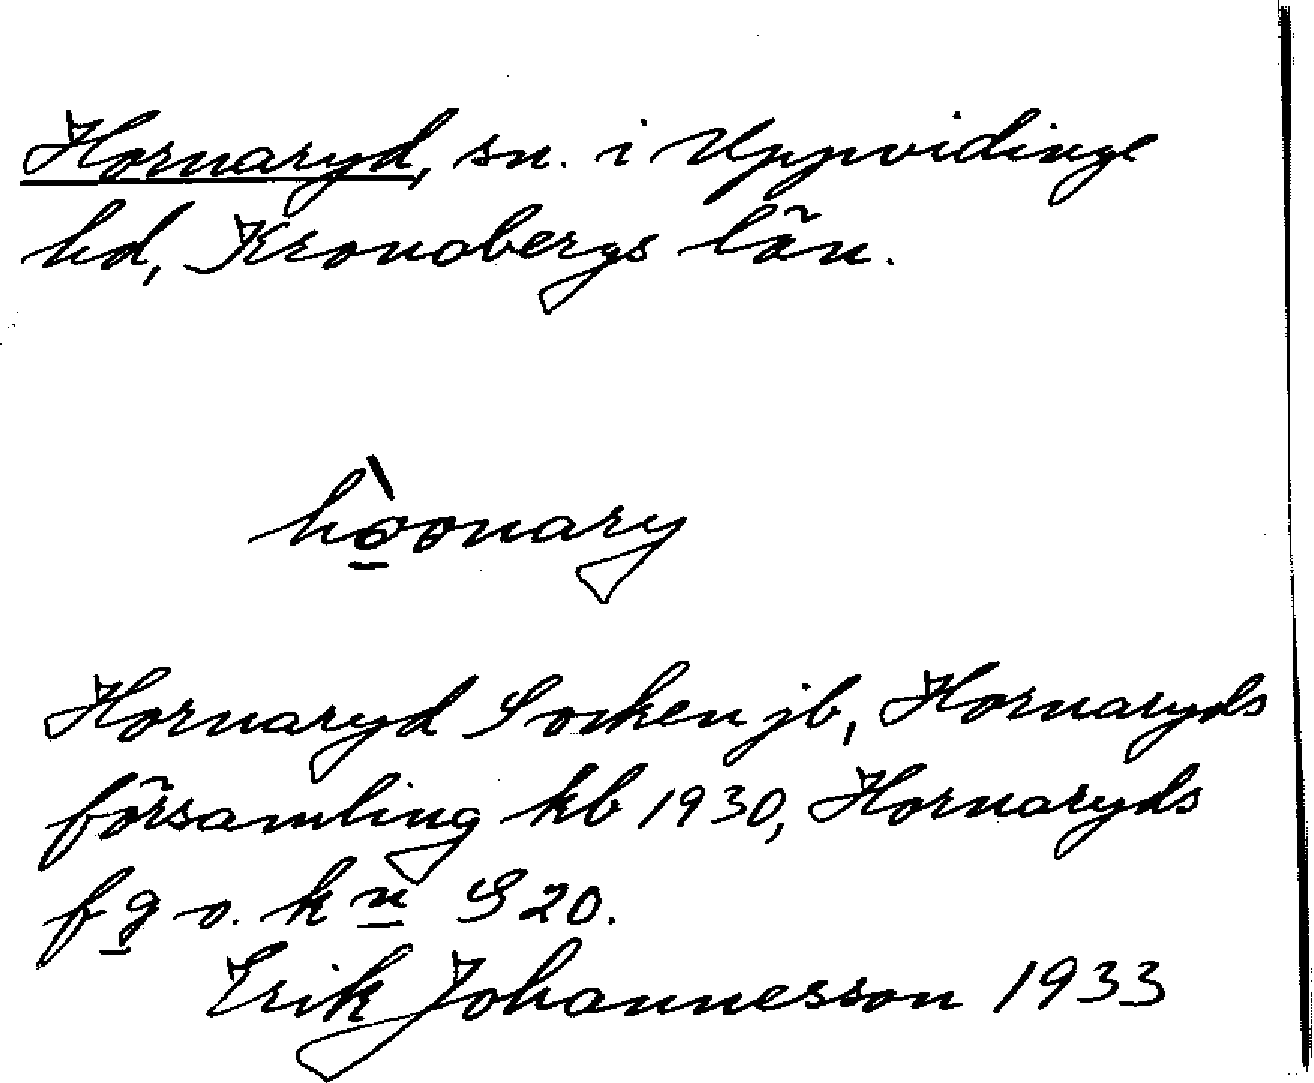 Hornaryd, sn. i Uppvidinge
hd, Kronobergs län.
hòonary
Hornaryd Socken jb, Hornaryds
församling kb 1930, Hornaryds
fg o. kn S 20.
Erik Johannesson 1933